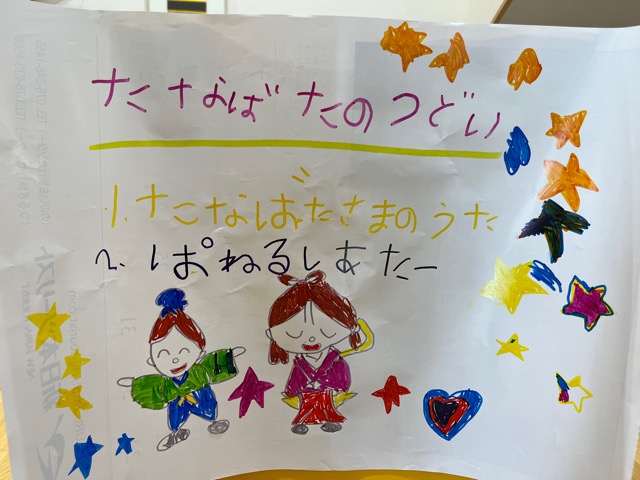 たなばたのつどい
1. たなばたさまのうた
2. ぱねるしあたー